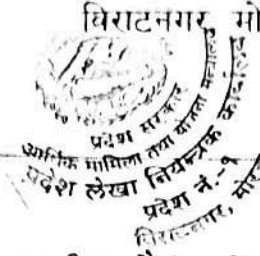 विराटनगर, मो
प्रदेश सरकार
आर्थिक मामिला तथा योजना मन्त्रालय
प्रदेश लेखा नियन्त्रक कार्यालय
प्रदेश नं.-१
विराटनगर, मोरङ